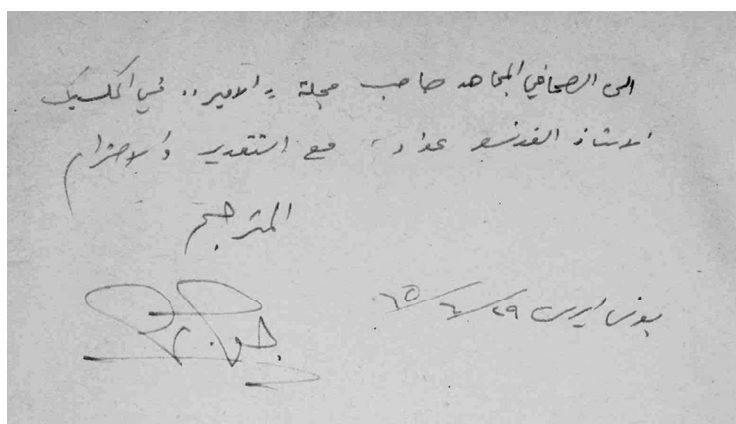 الى الصحافي المجاهد صاحب مجلة "الامير" في المكسيك
الاستاذ الفونسو عواد، مع التقدير والاحترام
المترجم
بونس ايرس ٢٩/٤/٦٥